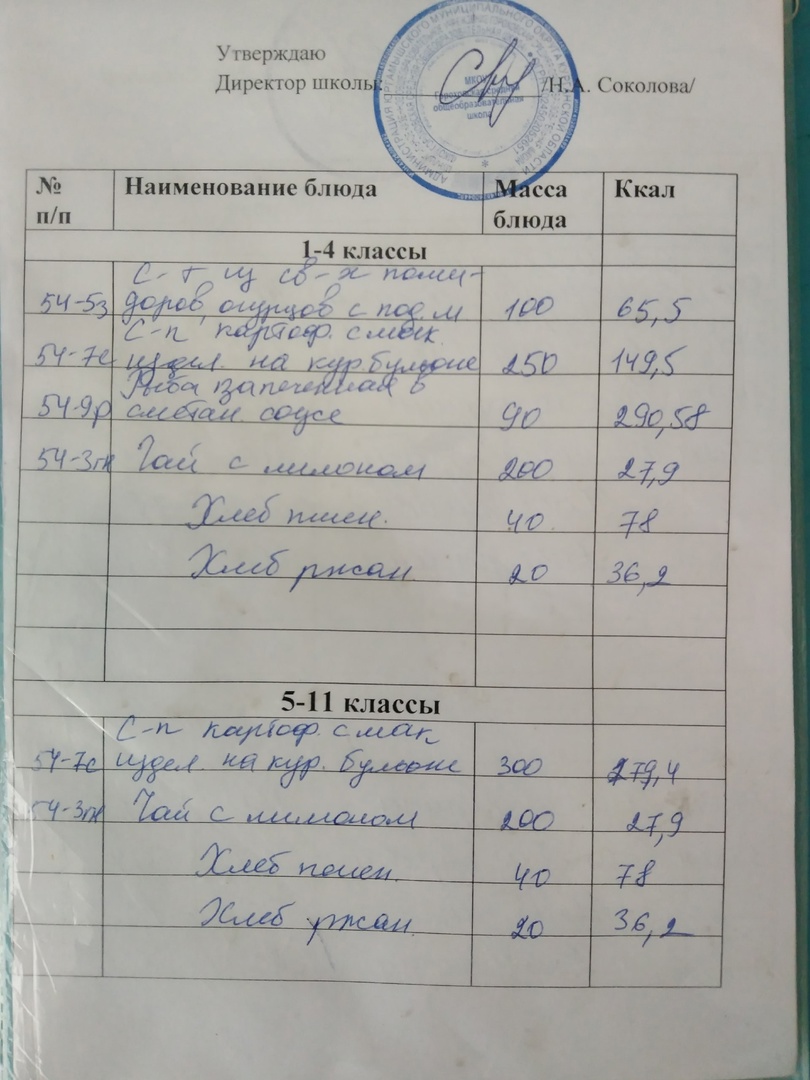 Утверждаю
Директор школы: /Н.А. Соколова/
МКОУ
Гороховская средняя
общеобразовательная
школа
№ п/п Наименование блюда Масса блюда Ккал
1-4 классы
С-т из св-х поми-
54-5з доров, огурцов с под.м 100 65,5
С-п картоф. с мак.
54-7с издел. на кур бульоне 250 149,5
Рыба запеченная в
54-9р сметан. соусе 90 290,58
54-3гн Чай с лимоном 200 27,9
Хлеб пшен. 40 78
Хлеб ржан. 20 36,2
5-11 классы
С-п картоф. с мак
54-7с издел. на кур. бульоне 300 179,4
54-3гн Чай с лимоном 200 27,9
Хлеб пшен. 40 78
Хлеб ржан. 20 36,2